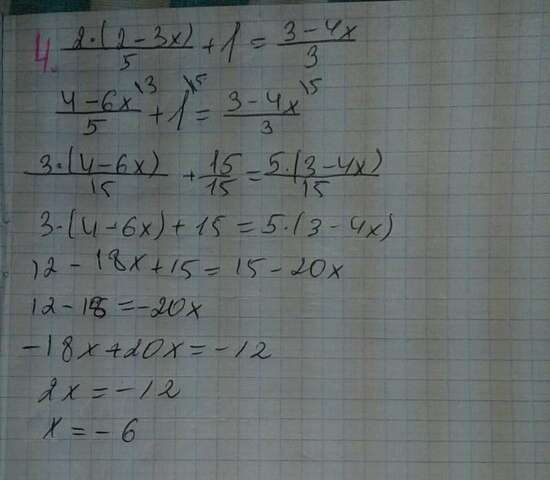 4. 2·(2-3x)/5 + 1 = 3-4x/3
4-6x\3/5 + 1\15 = 3-4x\5/3
3·(4-6x)/15 + 15/15 = 5·(3-4x)/15
3·(4-6x)+15=5·(3-4x)
12-18x+15=15-20x
12-18=-20x
-18x+20x=-12
2x=-12
x=-6